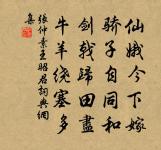 仙娥今下嫁
骄子自同和
剑戟归田尽
牛羊绕塞多
张仲素王昭君词典网
集